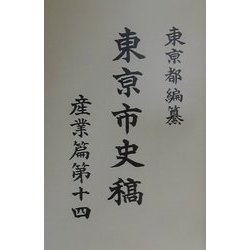 東京都編纂
東京市史稿
産業篇第十四